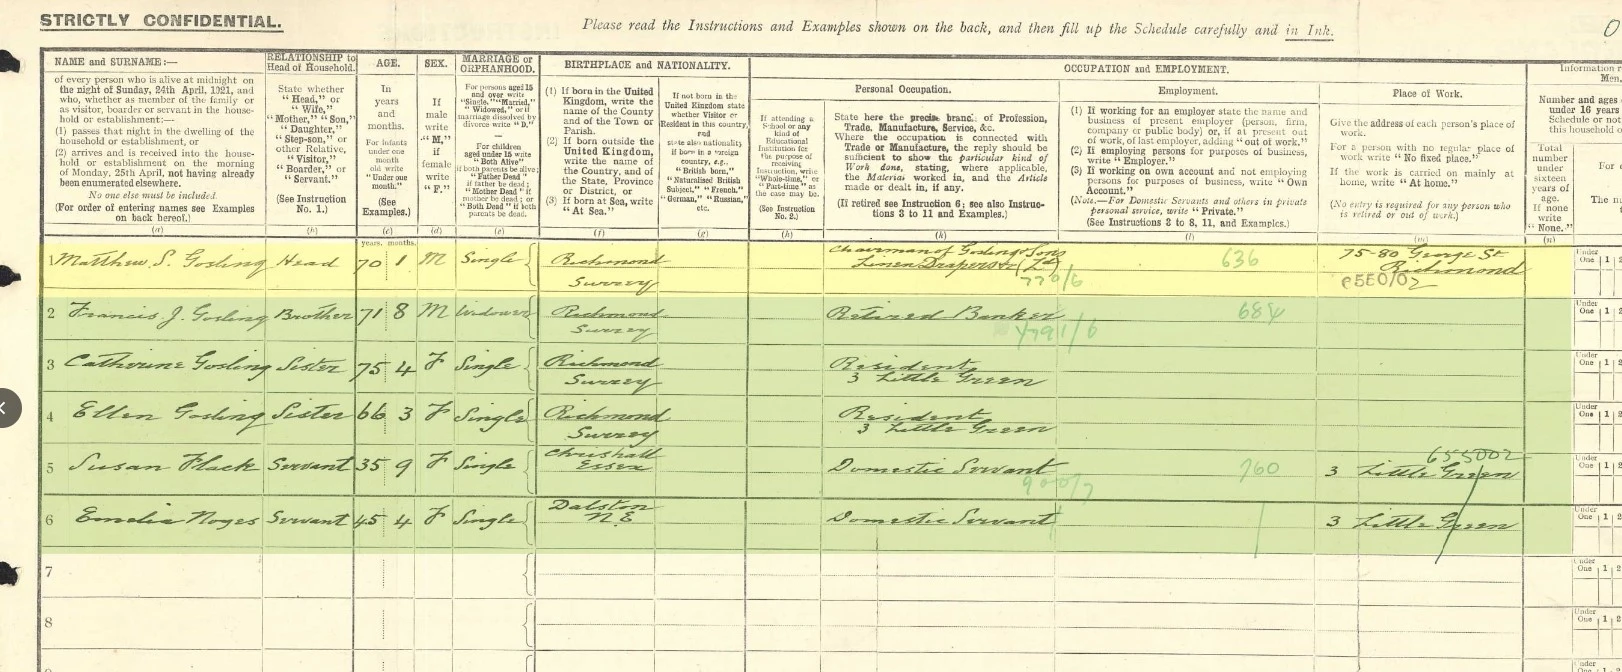 STRICTLY CONFIDENTIAL.
Please read the Instructions and Examples shown on the back, and then fill up the Schedule carefully and in Ink.
NAME and SURNAME:—
of every person who is alive at midnight on
the night of Sunday, 24th April, 1921, and
who, whether as member of the family or
as visitor, boarder or servant in the house-
hold or establishment:—
(1) passes that night in the dwelling of the
household or establishment, or
(2) arrives and is received into the house-
hold or establishment on the morning
of Monday, 25th April, not having already
been enumerated elsewhere.
No one else must be included.
(For order of entering names see Examples
on back hereof.)
(a)
RELATIONSHIP to
Head of Household.
State whether
"Head," or
"Wife,"
"Mother," "Son,"
"Daughter,"
"Step-son," or
other Relative,
"Visitor,"
"Boarder," or
"Servant."
(See Instruction
No. 1.)
(b)
AGE.
In
years
and
months.
For infants
under one
month
old write
"Under one
month."
(See
Examples.)
(c)
years. months.
SEX.
If
male
write
"M,"
if
female
write
"F."
(d)
MARRIAGE or
ORPHANHOOD.
For persons aged 15
and over write
"Single," "Married,"
"Widowed," or if
marriage dissolved by
divorce write "D."
For children
aged under 15 write
"Both Alive"
if both parents be alive;
"Father Dead"
if father be dead;
"Mother Dead" if
mother be dead; or
"Both Dead" if both
parents be dead.
(e)
BIRTHPLACE and NATIONALITY.
(1) If born in the United
Kingdom, write the
name of the County
and of the Town or
Parish.
(2) If born outside the
United Kingdom,
write the name of
the Country, and of
the State, Province
or District, or
(3) If born at Sea, write
"At Sea."
(f)
If not born in the
United Kingdom state
whether Visitor or
Resident in this country,
and
state also nationality
if born in a foreign
country, e.g.,
"British born,"
"Naturalised British
Subject," "French,"
"German," "Russian,"
etc.
(g)
OCCUPATION and EMPLOYMENT.
If attending a
School or any
kind of
Educational
Institution for
the purpose of
receiving
Instruction, write
"Whole-time," or
"Part-time" as
the case may be.
(See Instruction
No. 2.)
(h)
Personal Occupation.
State here the precise branch of Profession,
Trade, Manufacture, Service, &c.
Where the occupation is connected with
Trade or Manufacture, the reply should be
sufficient to show the particular kind of
Work done, stating, where applicable,
the Material worked in, and the Article
made or dealt in, if any.
(If retired see Instruction 6; see also Instruc-
tions 3 to 11 and Examples.)
(k)
Employment.
(1) If working for an employer state the name and
business of present employer (person, firm,
company or public body) or, if at present out
of work, of last employer, adding "out of work."
(2) If employing persons for purposes of business,
write "Employer."
(3) If working on own account and not employing
persons for purposes of business, write "Own
Account."
(Note.—For Domestic Servants and others in private
personal service, write "Private.")
(See Instructions 3 to 8, 11, and Examples.)
(l)
Place of Work.
Give the address of each person's place of
work.
For a person with no regular place of
work write "No fixed place."
If the work is carried on mainly at
home, write "At home."
(No entry is required for any person who
is retired or out of work.)
(m)
Information r
Men,
Number and ages
under 16 years
Schedule or not
this household
Total
number
under
sixteen
years of
age.
If none
write
"None."
(n)
For e
The n
1 Matthew S. Gosling Head 70 1 M Single Richmond Surrey Chairman of Gosling & Sons Linen Drapers (Ltd) 770/6 636 75-80 George St. Richmond
Under One 1 2
2 Francis J. Gosling Brother 71 8 M Widower Richmond Surrey Retired Banker 684
Under One 1 2
3 Catherine Gosling Sister 75 4 F Single Richmond Surrey Resident 3 Little Green
Under One 1 2
4 Ellen Gosling Sister 66 3 F Single Richmond Surrey Resident 3 Little Green
Under One 1 2
5 Susan Flack Servant 35 9 F Single Chrishall Essex Domestic Servant 900/7 760 3 Little Green 655002
Under One 1 2
6 Emelia Noyes Servant 45 4 F Single Dalston N E Domestic Servant 3 Little Green
Under One 1 2
7
Under One 1 2
8
Under One 1 2